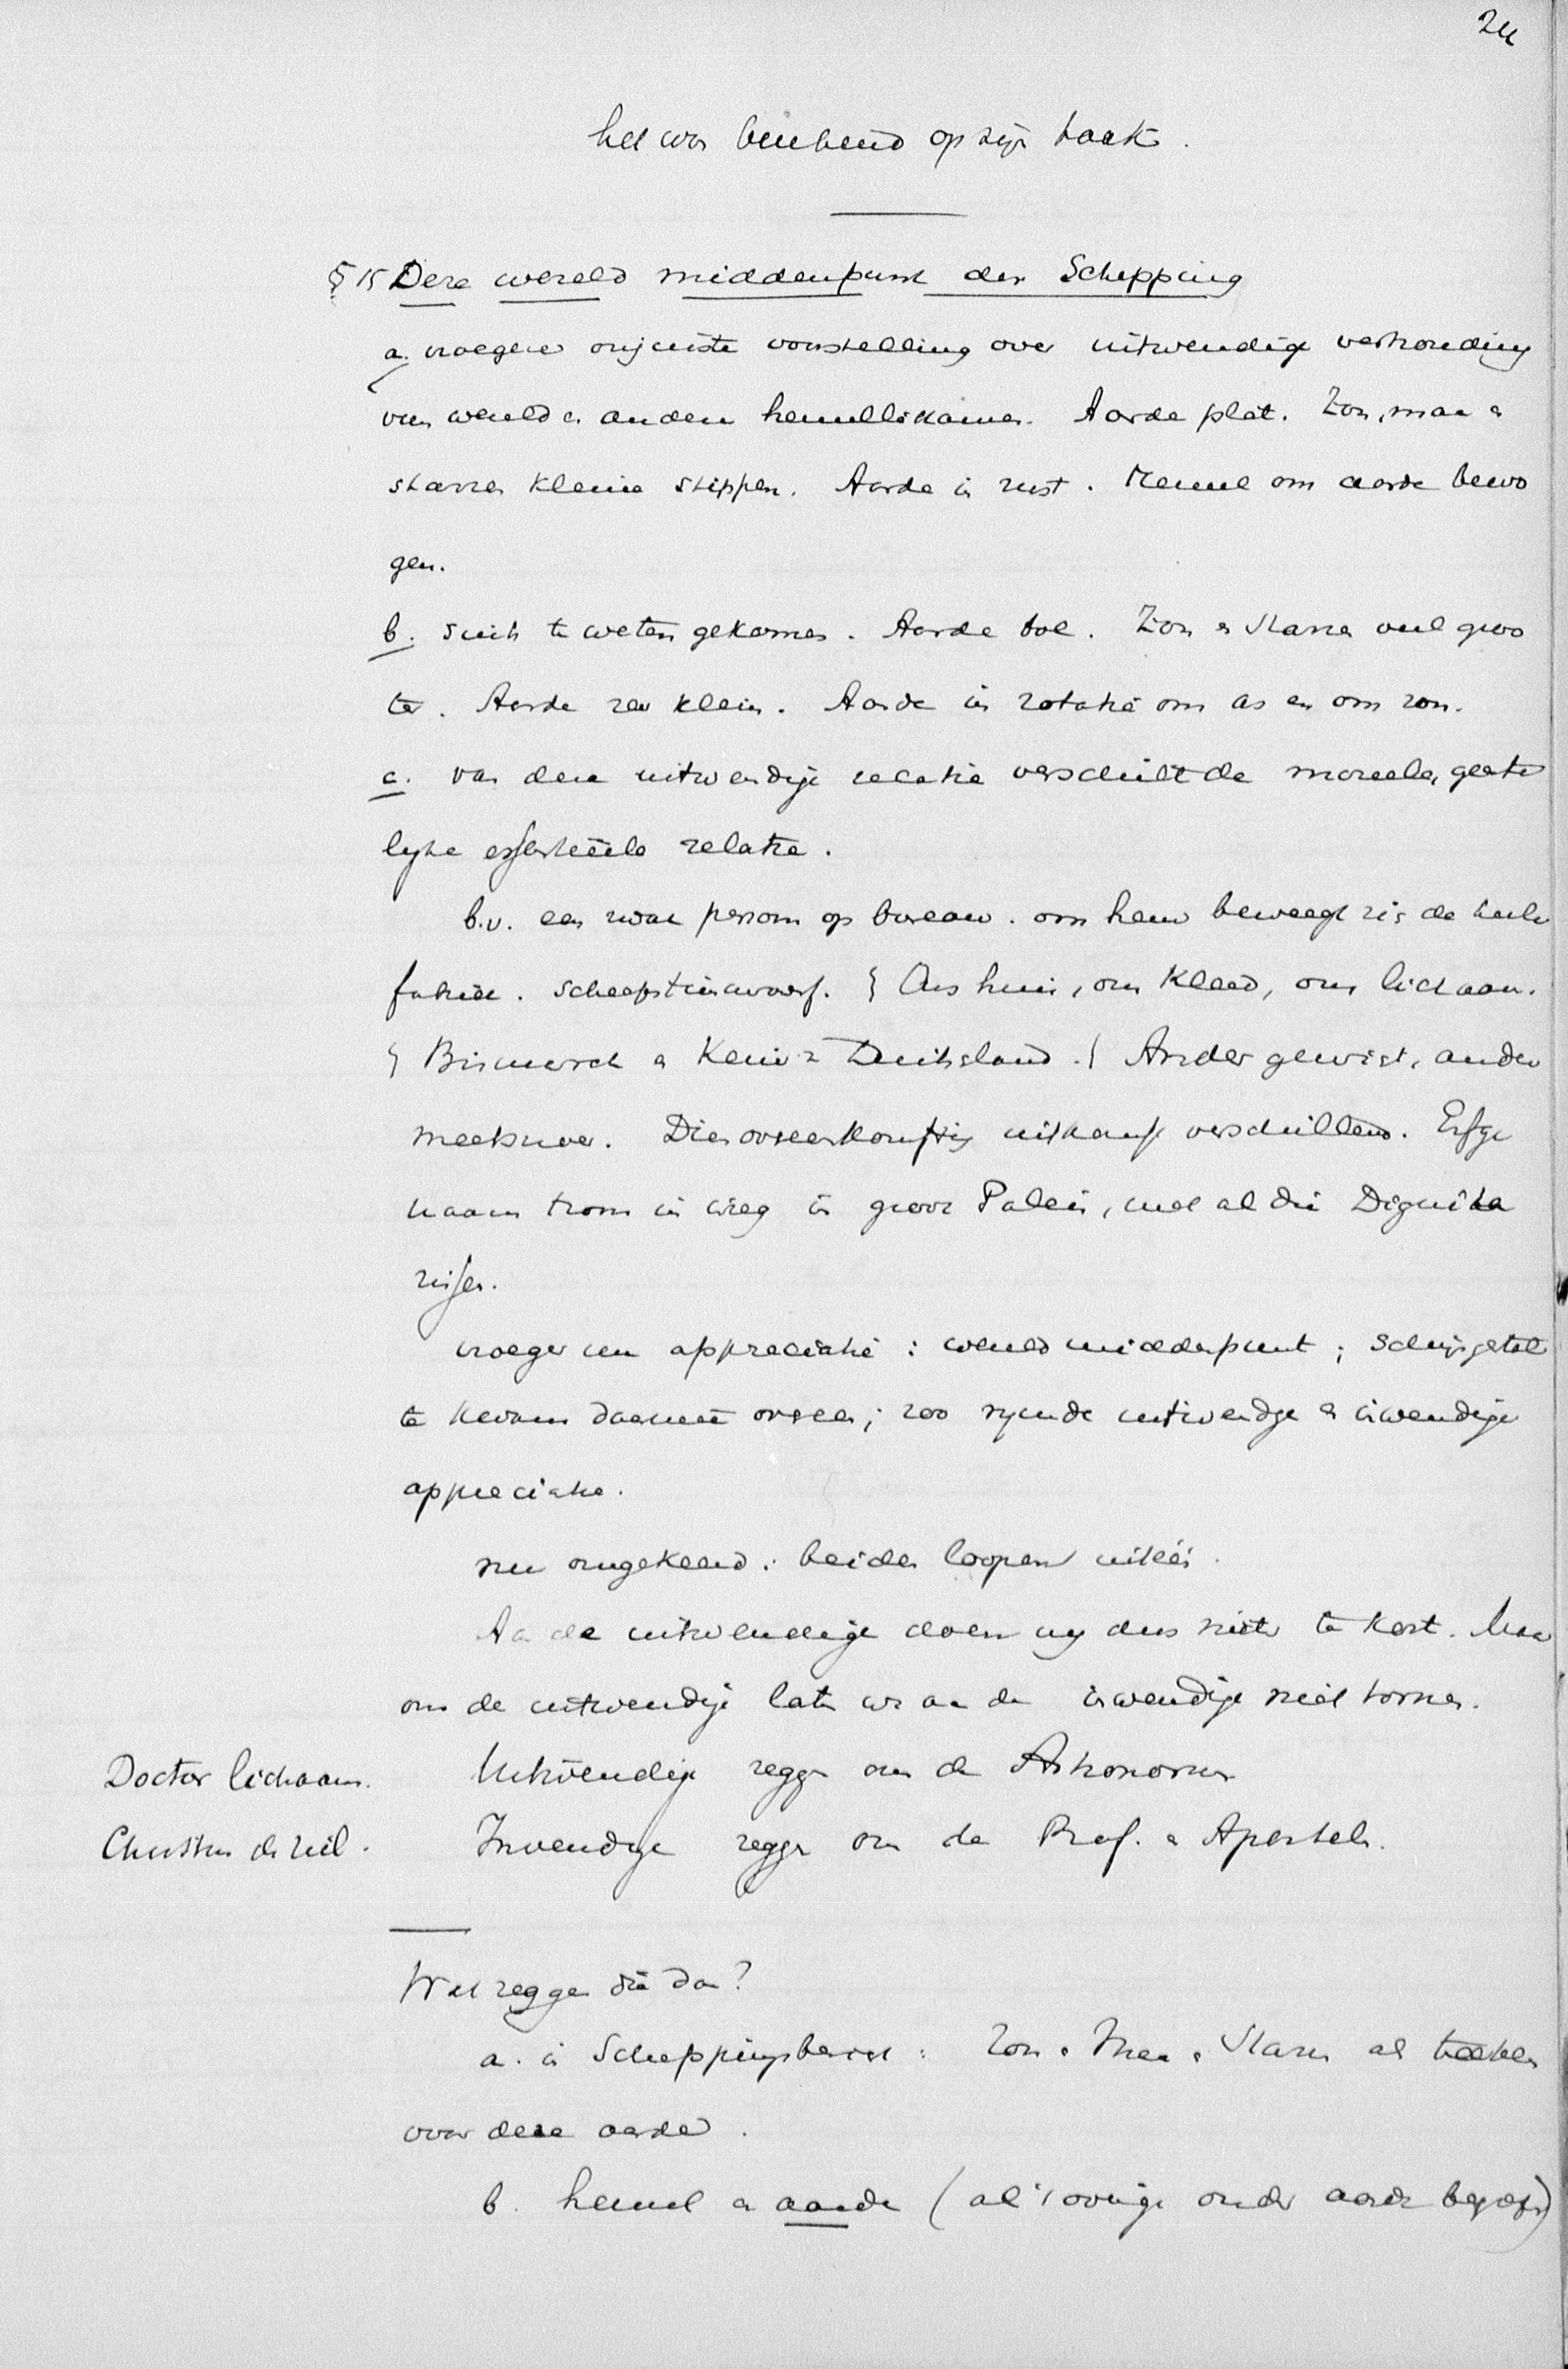 24
het was berekend op zijn taak.
§ 15 Deze wereld middenpunt der Schepping
a. vroegere onjuiste voorstelling over uitwendige verhouding
van wereld en andere hemellichamen. Aarde plat. Zon, maan en
starren kleine stippen. Aarde in rust. Hemel om aarde bewo
gen.
b. sinds te weten gekomen. Aarde bol. Zon en starren veel groo
ter. Aarde zeer klein. Aarde in rotatie om as en om zon.
c. van deze uitwendige relatie verschilt de moreele, geeste
lijke essentieele relatie.
b.v. een persoon op bureau. om hem beweegt zich de heele
fabriek. scheepstimmerwerf. Ons huis, ons kleed, ons lichaam.
Bismarck en Keizer Duitschland. Ander gewicht, ander
meetsnoer. Dier overeenkomstig uitkomst verschillend. Erfge
naam troon in wieg in groot Paleis, met al die Dignita
rissen.
vroeger een appreciatie: wereld middenpunt; schijngestal
te kwam daarmeê overeen; zoo rijmde uitwendige en inwendige
appreciatie.
nu omgekeerd: beiden loopen uitéén.
Aan de uitwendige doen wij dus niets te kort. Maar
om de uitwendige laten we aan de inwendige niet tornen.
Doctor lichaam. Uitwendige zeggen ons de Astronomen
Christus de ziel. Inwendige zeggen ons de Prof. en Apostelen.
Wat zeggen die dan?
a. in Scheppingsbericht: Zon en Maan en Starren als teekenen
voor deze aarde.
b. hemel en aarde (al 't overige onder aarde begrepen)